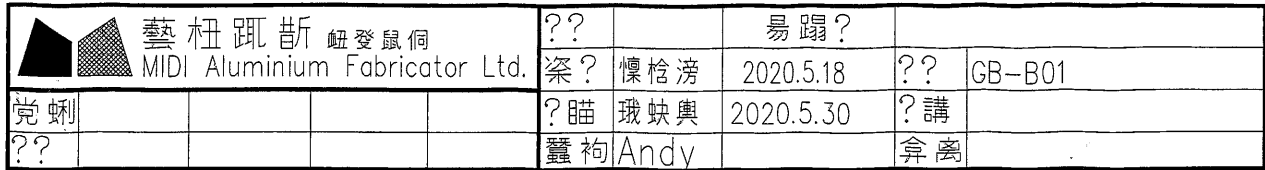 藝杻踂斮 衈登鼠侗
MIDI Aluminium Fabricator Ltd.
?? 易蹋?
粢? 懍桰滂 2020.5.18 ?? GB-B01
党蜊 ?瞄 珴蚗輿 2020.5.30 ?講
?? 蠶袧 Andy 弇离